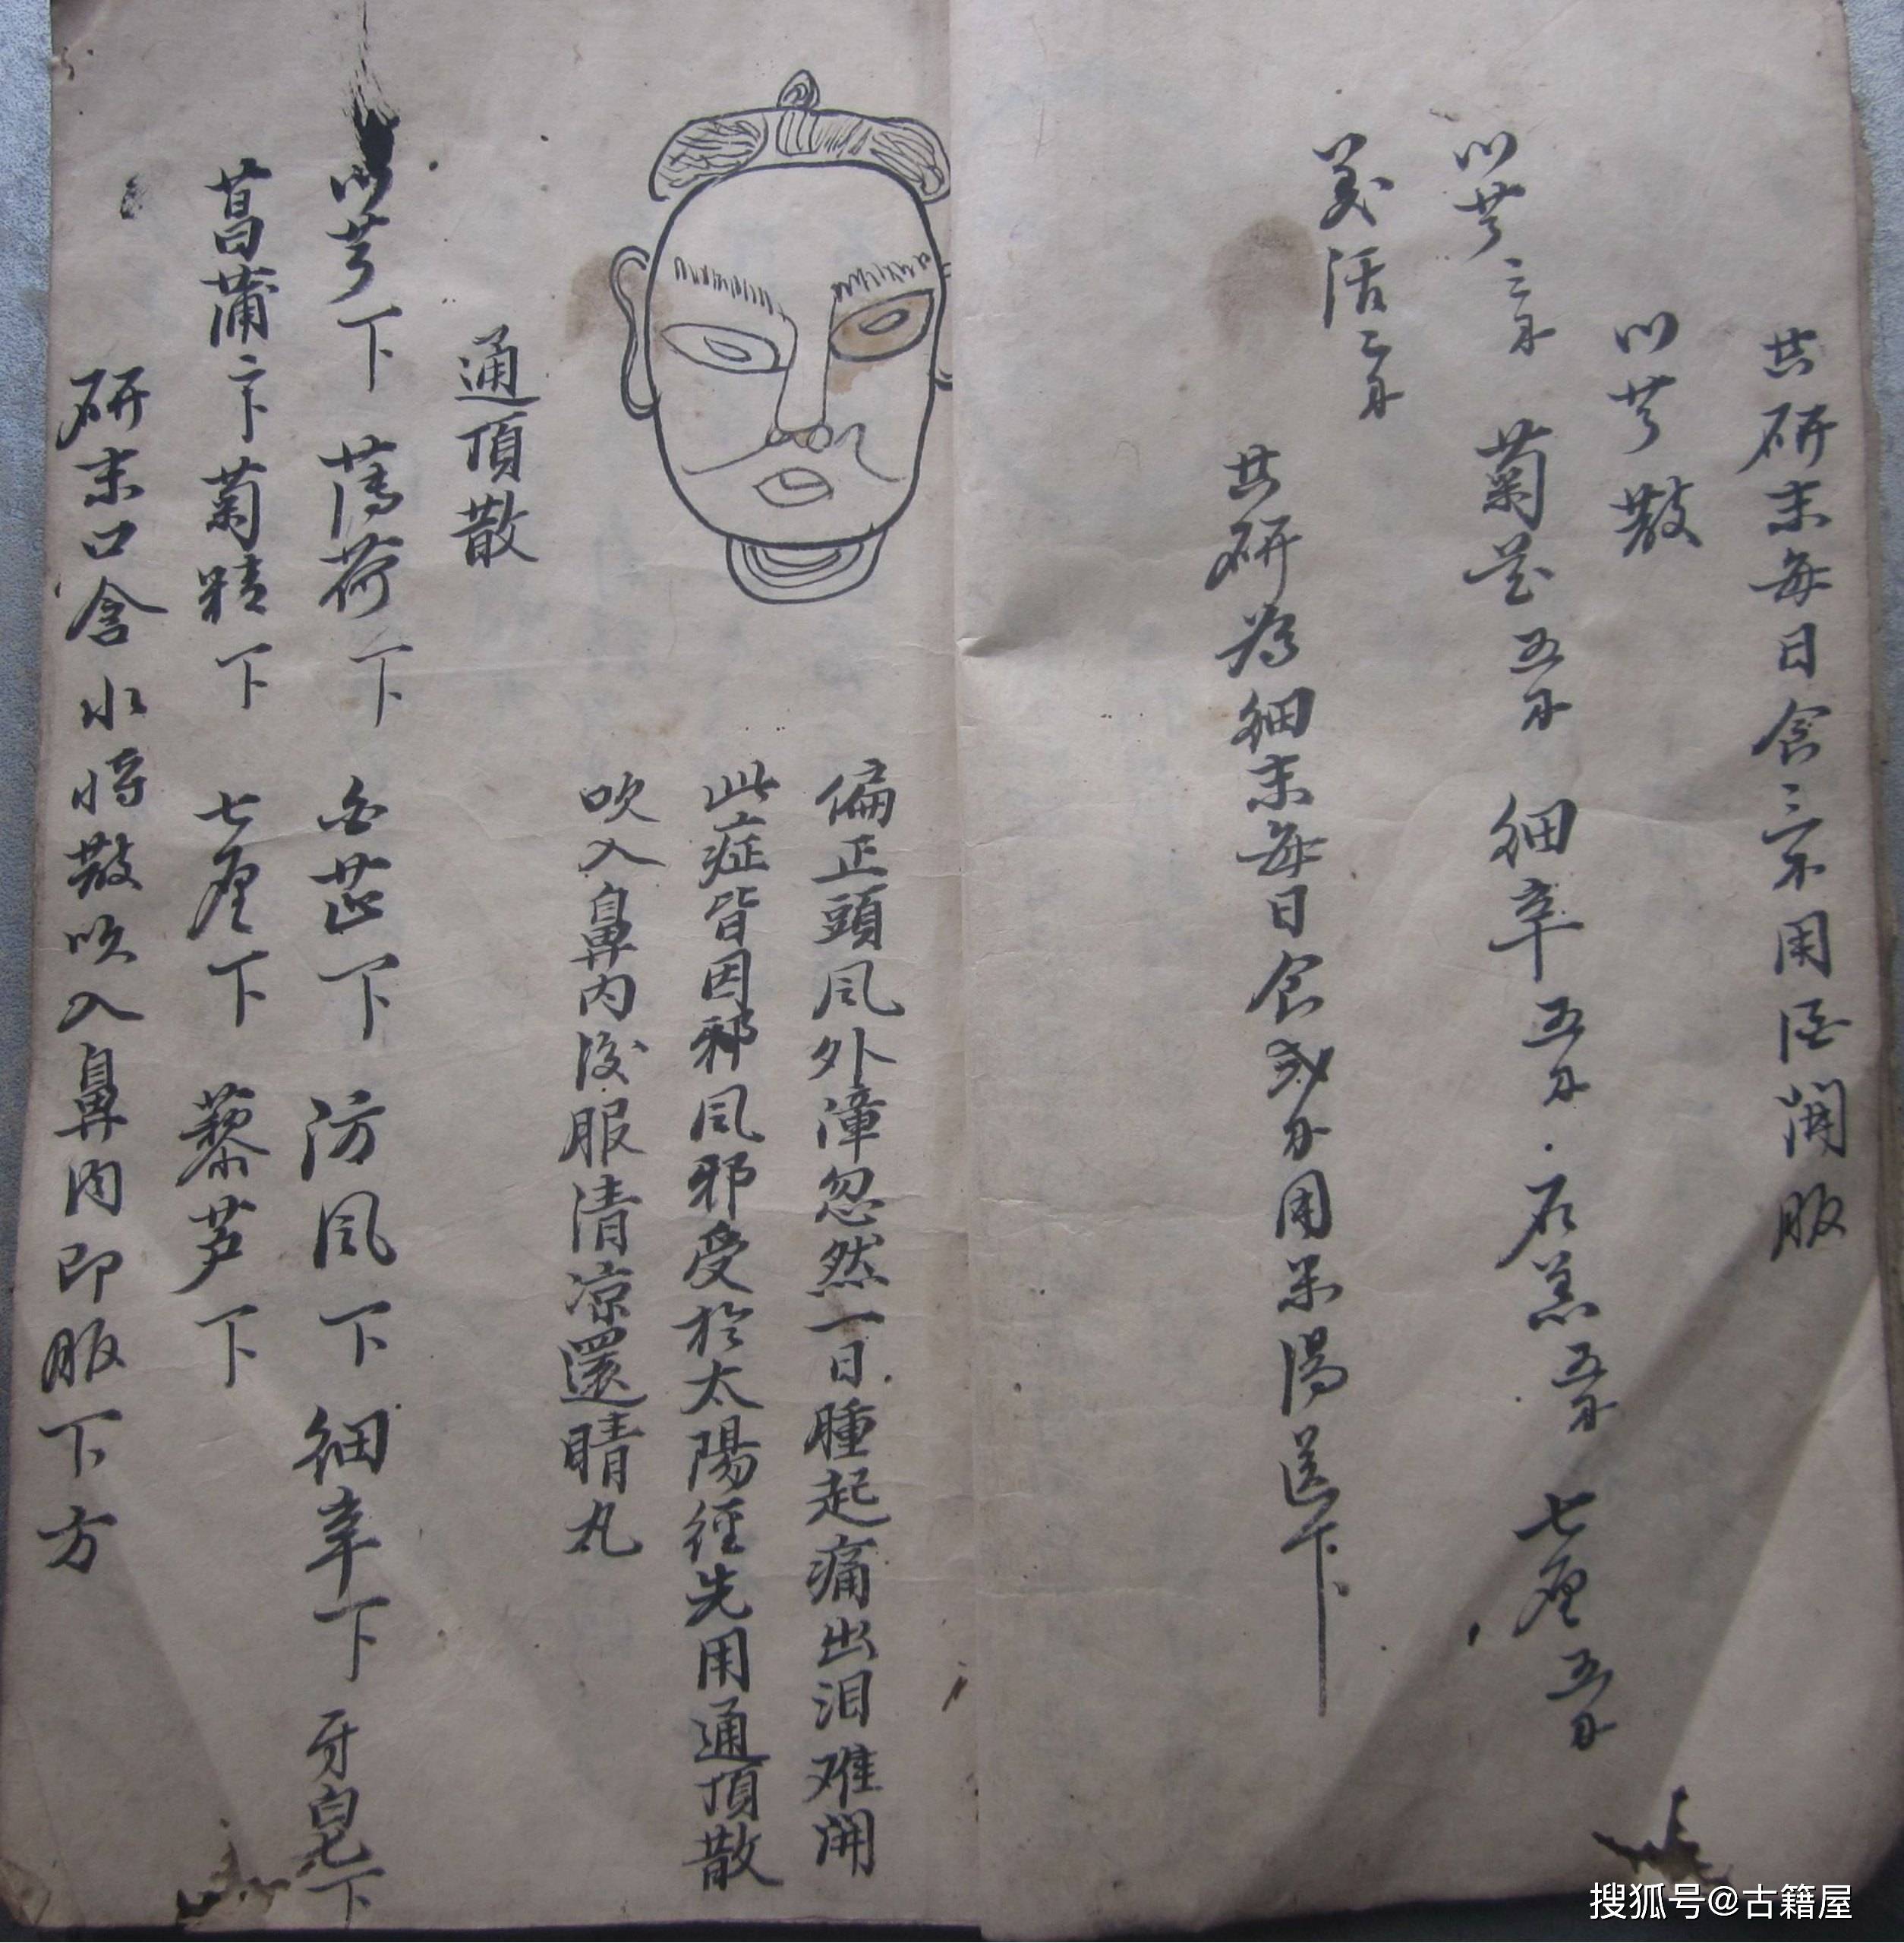 共研末每日食三 用酒開服
川芎散
川芎三分 菊花五分 细辛五分 石羔五分 七厘五分
羌活二分
共研為细末每日食 分用米湯送下
偏正頭风外漳忽然一日腫起痛出泪难開
此症皆因邪风邪受於太陽径先用通頂散
吹入鼻内後服清凉還睛丸
通頂散
川芎下 薄荷下 白芷下 防风下 细辛下 牙皂下
菖蒲二下 菊精下 七厘下 藜芦下
研末口含水将散吹入鼻内即服下方
搜狐号@古籍屋